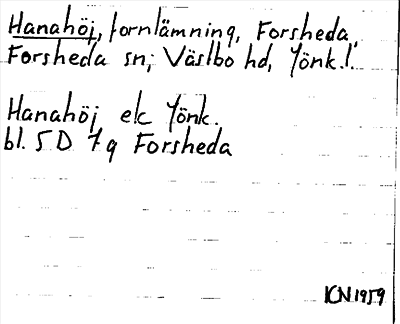 Hanahöj, fornlämning, Forsheda,
Forsheda sn; Västbo hd, Jönk.l.
Hanahöj ek Jönk.
bl. 5 D 7 g Forsheda
KN.1959